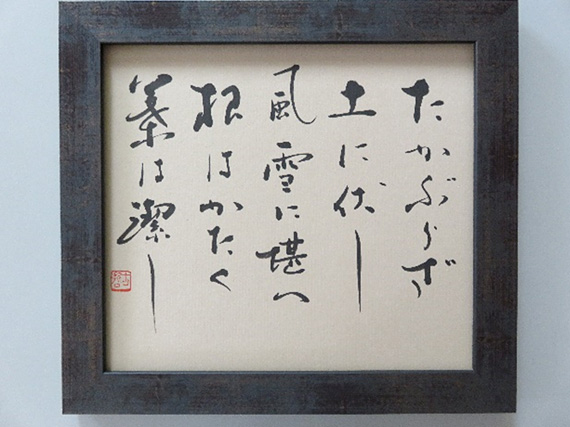 たかぶらず
土に伏し
風雪に堪へ
根はかたく
葉は潔し